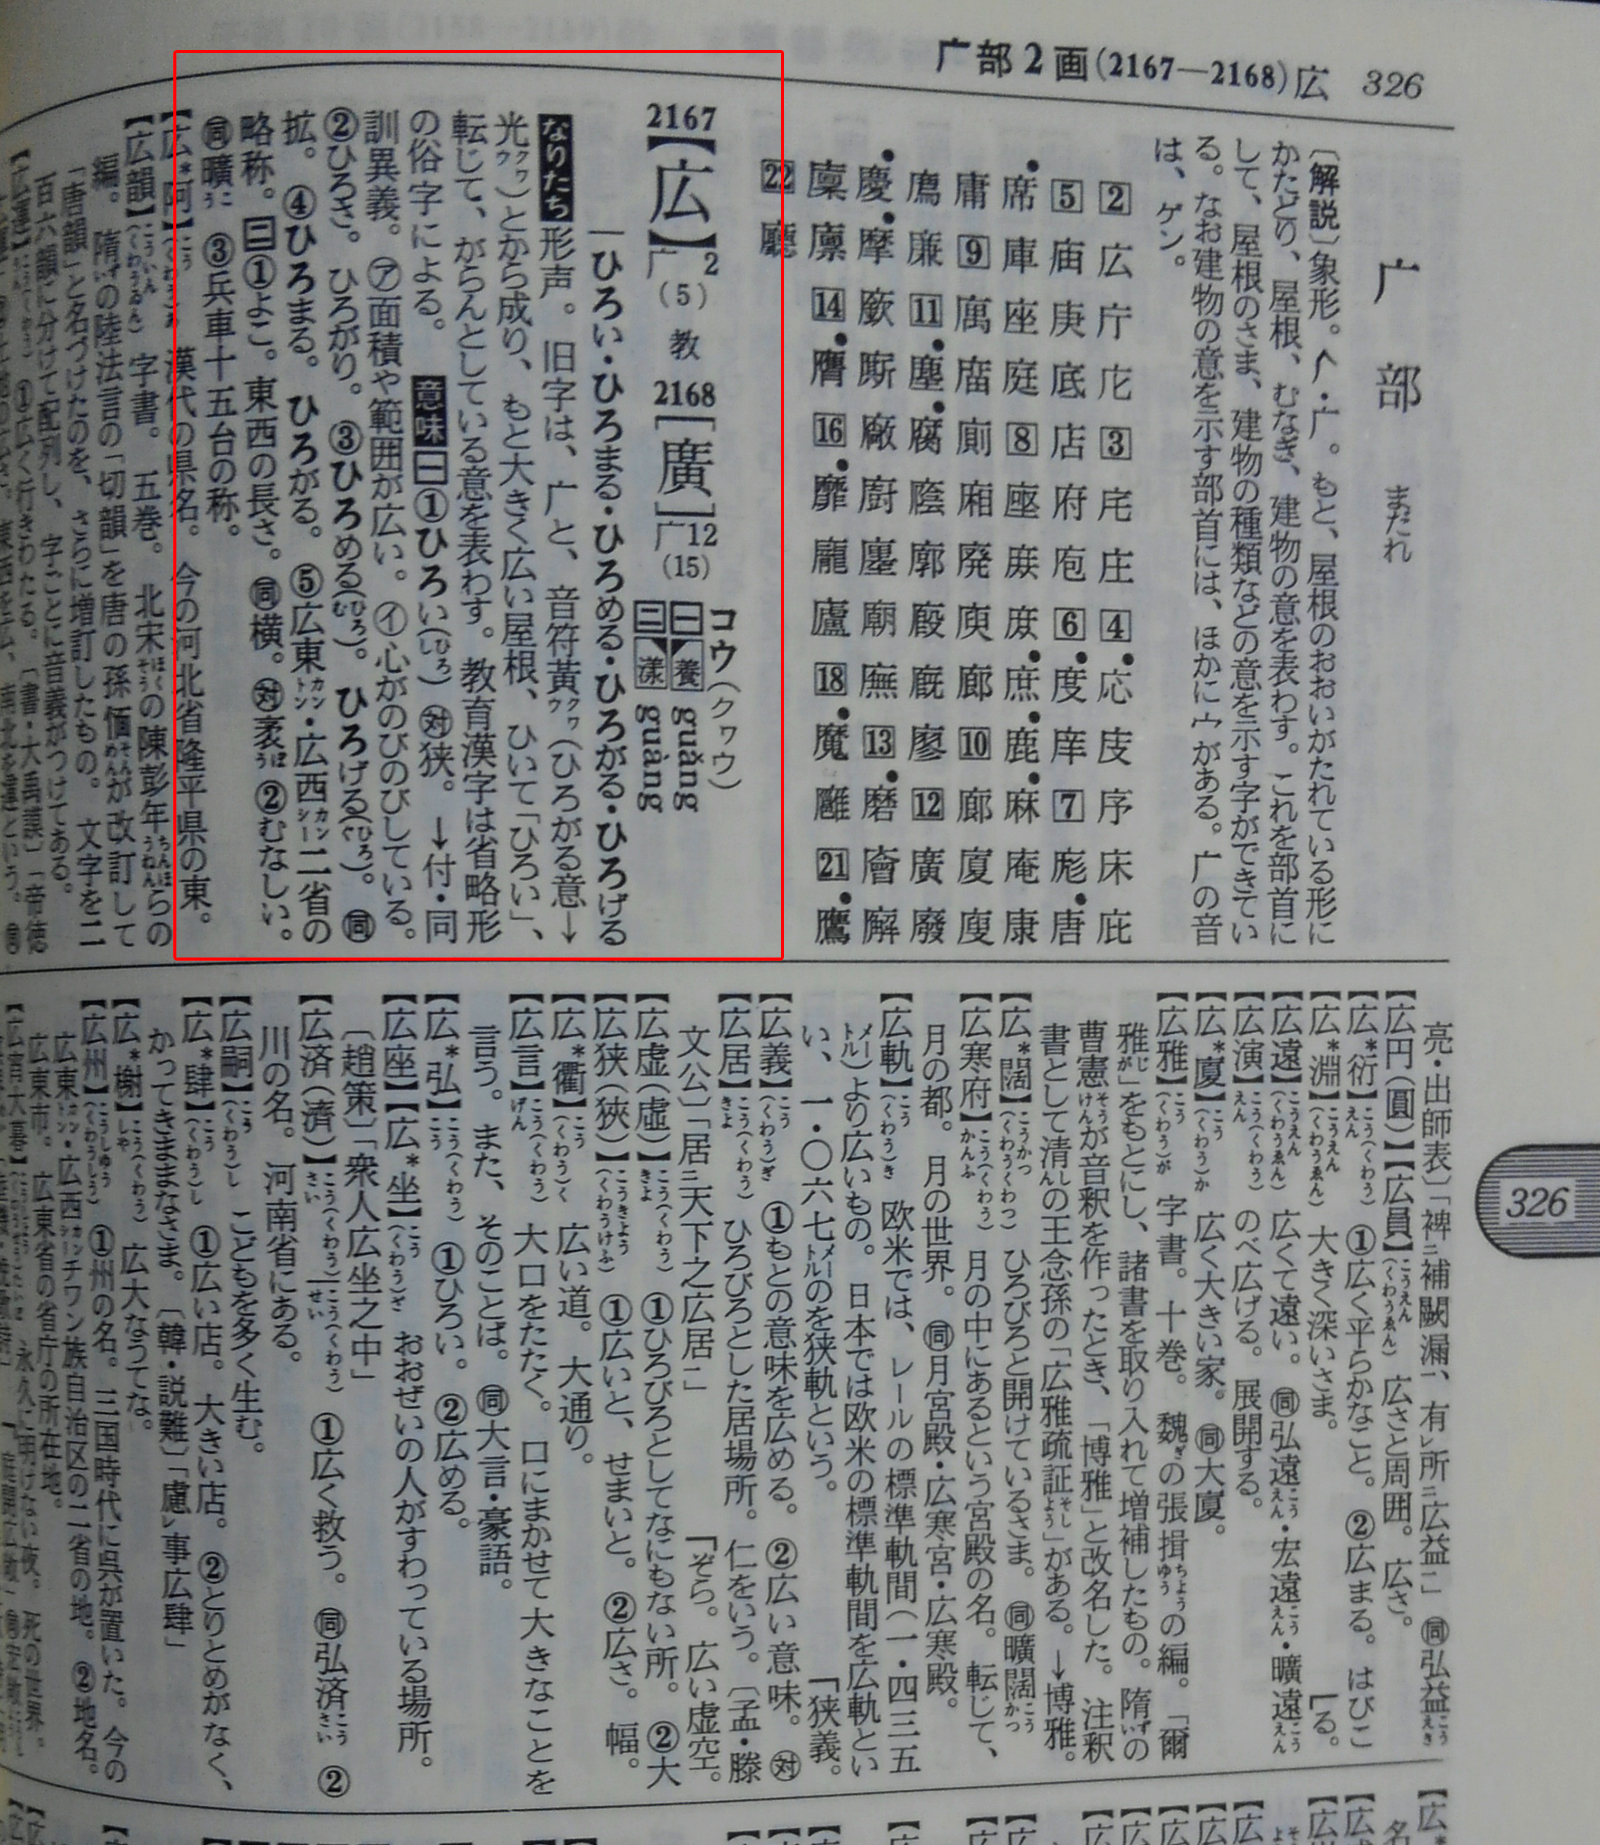 广部2画(2167—2168)広 326
广部 まだれ
〔解説〕象形。もと、屋根のおおいがたれている形に
かたどり、屋根、むなぎ、建物の意を表わす。これを部首に
して、屋根のさま、建物の種類などの意を示す字ができてい
る。なお建物の意を示す部首には、ほかに宀がある。广の音
は、ゲン。
2 広 庁 庀 3 宅 庄 4 応 庋 序 床 庇
5 庙 庚 底 店 府 庖 6 度 庠 7 庬 唐
席 庫 座 庭 8 庶 庶 鹿 麻 庵 康
庸 9 廂 廃 庾 廊 10 廊 廈 廋
廌 廉 11 塵 腐 廕 廓 廏 廐 廖 12 廣 廢
慶 摩 廞 廝 廠 廚 廛 廟 廡 13 磨 廥 廨
廩 14 膺 16 靡 龐 廬 18 魔 21 鷹
22 廳
2167【広】广2(5) 教 2168[廣]广12(15) コウ(クヮウ)
一養 guǎng
二漾 guàng
ひろい・ひろまる・ひろめる・ひろがる・ひろげる
なりたち 形声。旧字は、广と、音符黃クヮウ(ひろがる意→
光クヮウ)とから成り、もと大きく広い屋根、ひいて「ひろい」、
転じて、がらんとしている意を表わす。教育漢字は省略形
の俗字による。 意味 一①ひろい(ひろし) 対狭。 →付・同
訓異義。㋐面積や範囲が広い。㋑心がのびのびしている。
②ひろさ。ひろがり。③ひろめる(ひろむ)。ひろげる(ひろぐ)。同
拡。④ひろまる。ひろがる。⑤広東カントン・広西カンシー二省の
略称。二①よこ。東西の長さ。同横。対袤ぼう②むなしい。
同曠こう ③兵車十五台の称。
【広*阿】こう(くわう)あ 漢代の県名。今の河北省隆平県の東。
【広韻】こういん(くわうゐん) 字書。五巻。北宋ほくそうの陳彭年ちんほうねんらの
編。隋ずいの陸法言の「切韻」を唐の孫愐そんめんが改訂して
「唐韻」と名づけたのを、さらに増訂したもの。文字を二
百六韻に分けて配列し、字ごとに音義がつけてある。
亮・出師表〕「裨ニ補闕漏一、有レ所ニ広益一」 同弘益こうえき
【広円(圓)】【広員】こうえん(くわうゑん) 広さと周囲。広さ。
【広*衍】こう(くわう)えん ①広く平らかなこと。②広まる。はびこ
る。
【広*淵】こうえん(くわうゑん) 大きく深いさま。
【広遠】こうえん(くわうゑん) 広くて遠い。同弘遠こうえん・宏遠こうえん・曠遠こうえん
【広演】こう(くわう)えん のべ広げる。展開する。
【広*廈】こう(くわう)か 広く大きい家。同大廈。
【広雅】こう(くわう)が 字書。十巻。魏ぎの張揖ちょうゆうの編。「爾
雅じが」をもとにし、諸書を取り入れて増補したもの。隋ずいの
曹憲そうけんが音釈を作ったとき、「博雅」と改名した。注釈
書として清しんの王念孫の「広雅疏証そしょう」がある。→博雅。
【広*闊】こうかつ(くわうくわつ) ひろびろと開けているさま。同曠闊こうかつ
【広寒府】こう(くわう)かんふ 月の中にあるという宮殿の名。転じて、
月の都。月の世界。同月宮殿・広寒宮・広寒殿。
【広軌】こう(くわう)き 欧米では、レールの標準軌間(一・四三五
メートル)より広いもの。日本では欧米の標準軌間を広軌とい
い、一・〇六七メートルのを狭軌という。 狭義。
【広義】こう(くわう)ぎ ①もとの意味を広める。②広い意味。対
【広居】こう(くわう)きよ ひろびろとした居場所。仁をいう。〔孟・滕
文公〕「居ニ天下之広居一」 ぞら。広い虚空。
【広虚(虛)】こう(くわう)きよ ①ひろびろとしてなにもない所。②大
【広狭(狹)】こうきよう(くわうけふ) ①広いと、せまいと。②広さ。幅。
【広*衢】こう(くわう)く 広い道。大通り。
【広言】こう(くわう)げん 大口をたたく。口にまかせて大きなことを
言う。また、そのことば。同大言・豪語。
【広*弘】こう(くわう)こう ①ひろい。②広める。
【広座】【広*坐】こう(くわう)ざ おおぜいの人がすわっている場所。
〔趙策〕「衆人広坐之中」
【広済(濟)】こう(くわう)さい こう(くわう)せい ①広く救う。同弘済こうさい ②
川の名。河南省にある。
【広嗣】こう(くわう)し こどもを多く生む。
【広*肆】こう(くわう)し ①広い店。大きい店。②とりとめがなく、
かってきままなさま。〔韓・説難〕「慮レ事広肆」
【広*榭】こう(くわう)しや 広大なうてな。
【広州】こうしゆう(くわうしう) ①州の名。三国時代に呉が置いた。今の
広東カントン・広西カンシーチワン族自治区の二省の地。②地名。
広東市。広東省の省庁の所在地。
326